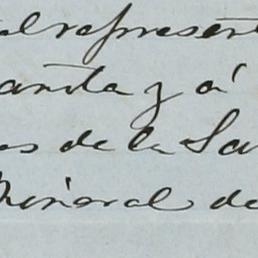 al represent
anita y á
os de la Sa
Mineral de